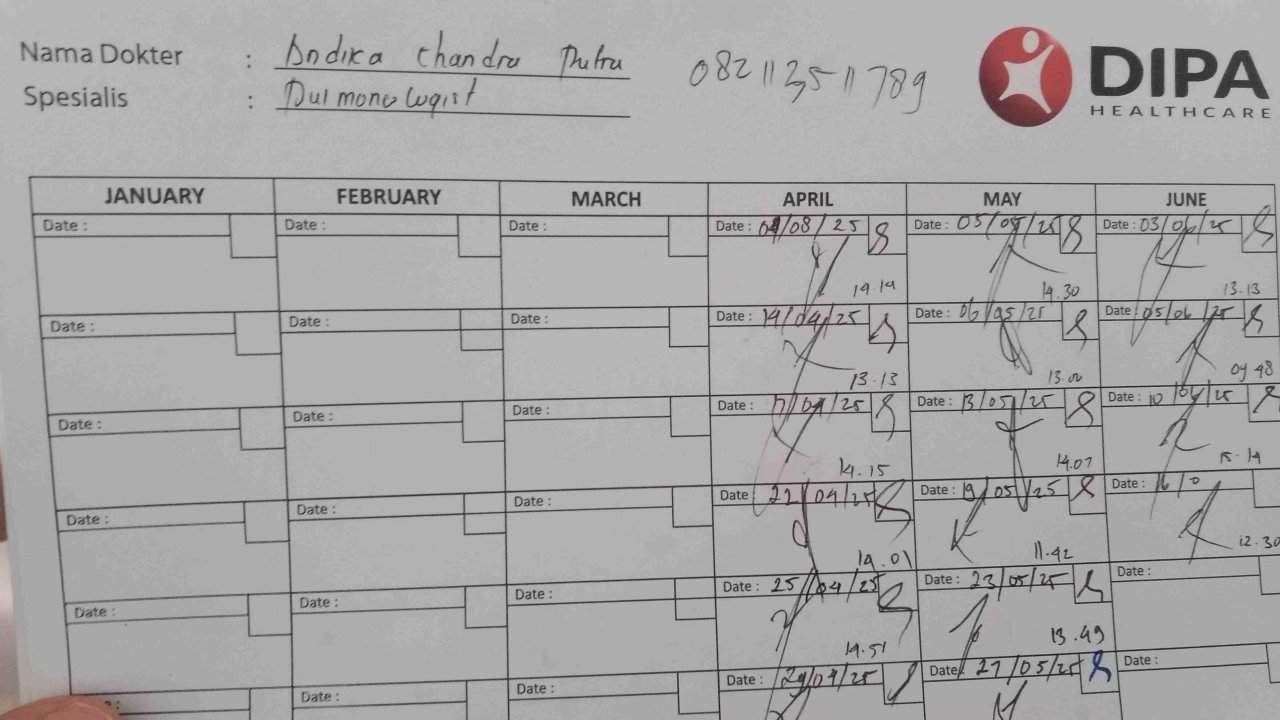 Nama Dokter : Andika Chandra Putra 082113511789
Spesialis : Pulmonologist
DIPA
HEALTHCARE
JANUARY FEBRUARY MARCH APRIL MAY JUNE
Date : Date : Date : Date : 08/25 Date : 05/05/25 Date : 03/06/25
14.30 13.13
Date : Date : Date : Date : 14/04/25 Date : 06/05/25 Date : 05/06/25
13.13 13.00 09.48
Date : Date : Date : Date : 17/04/25 Date : 13/05/25 Date : 10/06/25
14.15 14.07 15.19
Date : Date : Date : Date : 22/04/25 Date : 19/05/25 Date : 16/0
14.01 11.42 12.30
Date : Date : Date : Date : 25/04/25 Date : 23/05/25 Date :
14.51 13.49
Date : Date : Date : 29/04/25 Date : 27/05/25 Date :